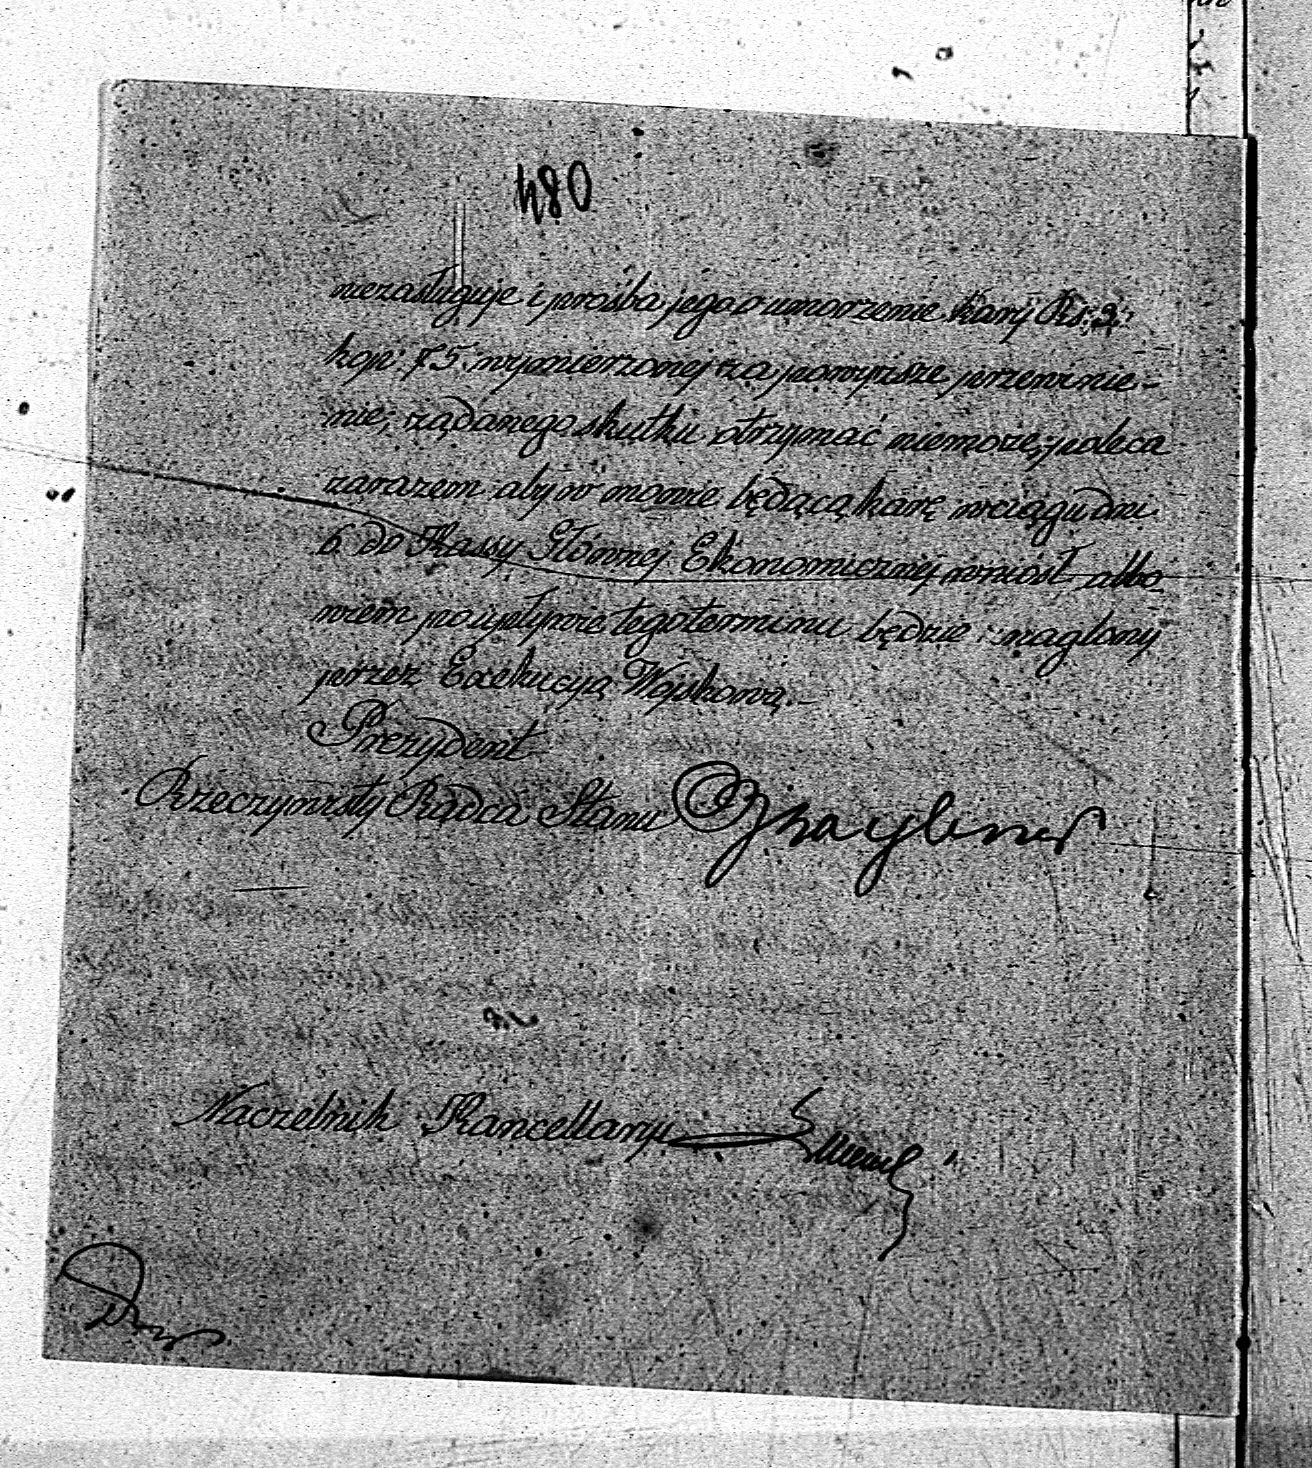 480
niezasługuje i prośba jego o umorzenie kary Rs: 3.
kop: 75 wymierzonej za powyższe przewinie-
nie, żądanego skutku otrzymać niemoże, poleca
zarazem aby w mowie będącą karę wciągu dni
6 do Kassy Głównej Ekonomicznej wniósł albo-
wiem po upływie tego terminu będzie naglony
przez Exekucyją Wojskową.-
Prezydent
Rzeczywisty Radca Stanu
Naczelnik Kancellaryi